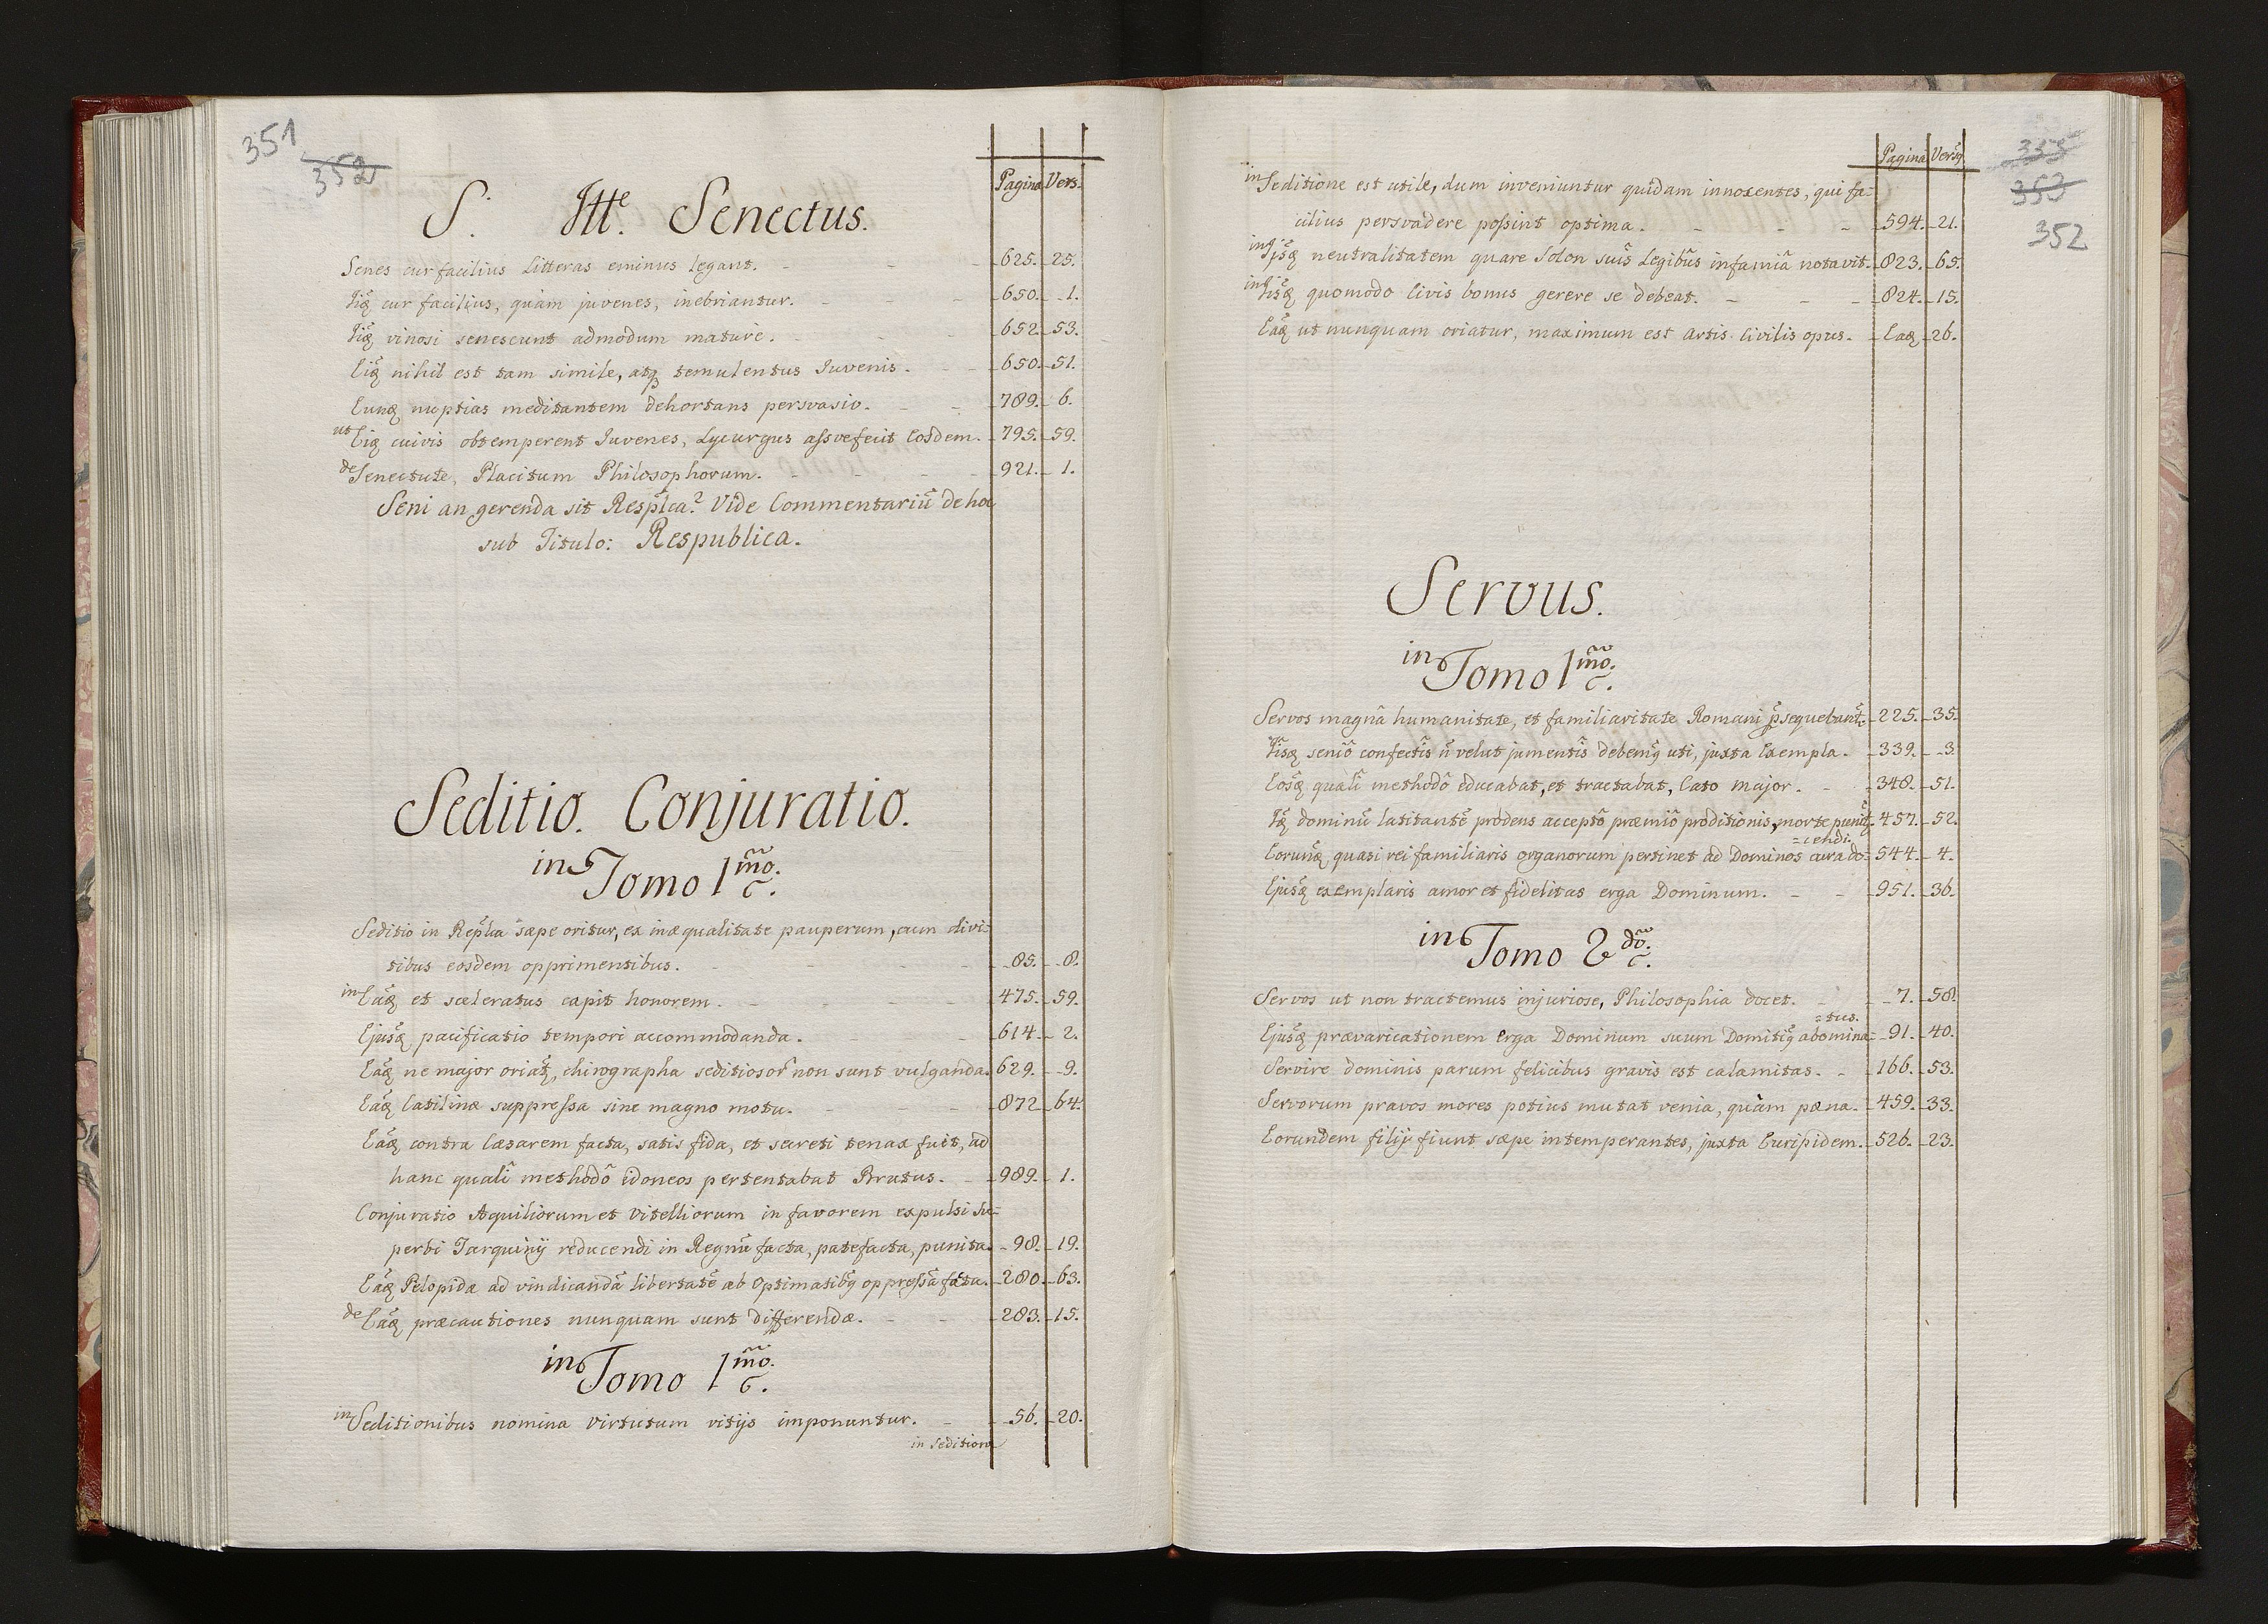 351
352
Pagina Vers.
S. Ittẽ. Senectus.
Senes cur facilius Litteras eminus legant. 625. 25.
Iiq cur facilius, quàm juvenes, inebriantur. 650. 1.
Iiq vinosi senescunt admodum maturè. 652. 53.
Eiq nihil est tam simile, atq temulentus Iuvenis. 650. 51.
Eunq nuptias meditantem dehortans persvasio. 789. 6.
ut Eiq cuivis obtemperent Iuvenes, Lycurgus assvefecit Eosdem. 795. 59.
de Senectute, Placitum Philosophorum. 921. 1.
Seni an gerenda sit Resplca? Vide Commentariũ de hoc
sub Titulo: Respublica.
Seditio. Conjuratio.
in Tomo 1mo.
Seditio in Replca sæpe oritur, ex inæqualitate pauperum, cum divi=
tibus eosdem opprimentibus. 85. 8.
in Eâq et sceleratus capit honorem. 475. 59.
Ejusq pacificatio tempori accommodanda. 614. 2.
Eaq ne major oriatq, chirographa seditiosor non sunt vulganda. 629. 9.
Eaq Catilinæ suppressa sine magno motu. 872 64.
Eaq contra Cæsarem facta, satis fida, et secreti tenax fuit, ad
hanc quali methodô idoneos pertentabat Brutus. 989. 1.
Conjuratio Aquiliorum et Vitelliorum in favorem expulsi Su=
perbi Tarquinij reducendi in Regnũ facta, patefacta, punita. 98. 19.
Eaq Pelopidæ ad vindicandã libertatẽ ab Optimatibq oppressã facta. 280. 63.
de Eâq præcautiones nunquam sunt differendæ. 283. 15.
in Tomo 1mo.
in Seditionibus nomina virtutum vitijs imponuntur. 56. 20.
in Seditione
355
353
352
Pagina Versq
in Seditione est utile, dum inveniuntur quidam innocentes, qui fa=
cilius persvadere possint optima. 594. 21.
in Ejsq neutralitatem quare Solon suis Legibus infamiâ notavit. 823. 65.
in Iisq quomodo Civis bonus gerere se debeat. 824. 15.
Eaq ut nunquam oriatur, maximum est Artis Civilis opus. Eaq 26.
Servus.
in Tomo 1mo.
Servos magnâ humanitate, et familiaritate Romani psequebant. 225. 35.
Iisq seniô confectis ñ velut jumentis debemq uti, juxta Exempla. 339. 3.
Eosq quali methodô educabat, et tractabat, Cato Major. 348. 51.
Iq dominũ latitantẽ prodens acceptô præmiô proditionis, morte punitq. 457. 52.
=cendi.
Eorunq quasi rei familiaris organorum pertinet ad Dominos cura do= 544. 4.
Ejusq exemplaris amor et fidelitas erga Dominum. 951. 36.
in Tomo 2do.
Servos ut non tractemus injuriose, Philosophia docet. 7. 58.
=tus.
Ejusq prævaricationem erga Dominum suum Domitiq abomina= 91. 40.
Servire dominis parum felicibus gravis est calamitas. 166. 53.
Servorum pravos mores potius mutat venia, quàm pæna. 459. 33.
Eorundem filij fiunt sæpe intemperantes, juxta Euripidem. 526. 23.